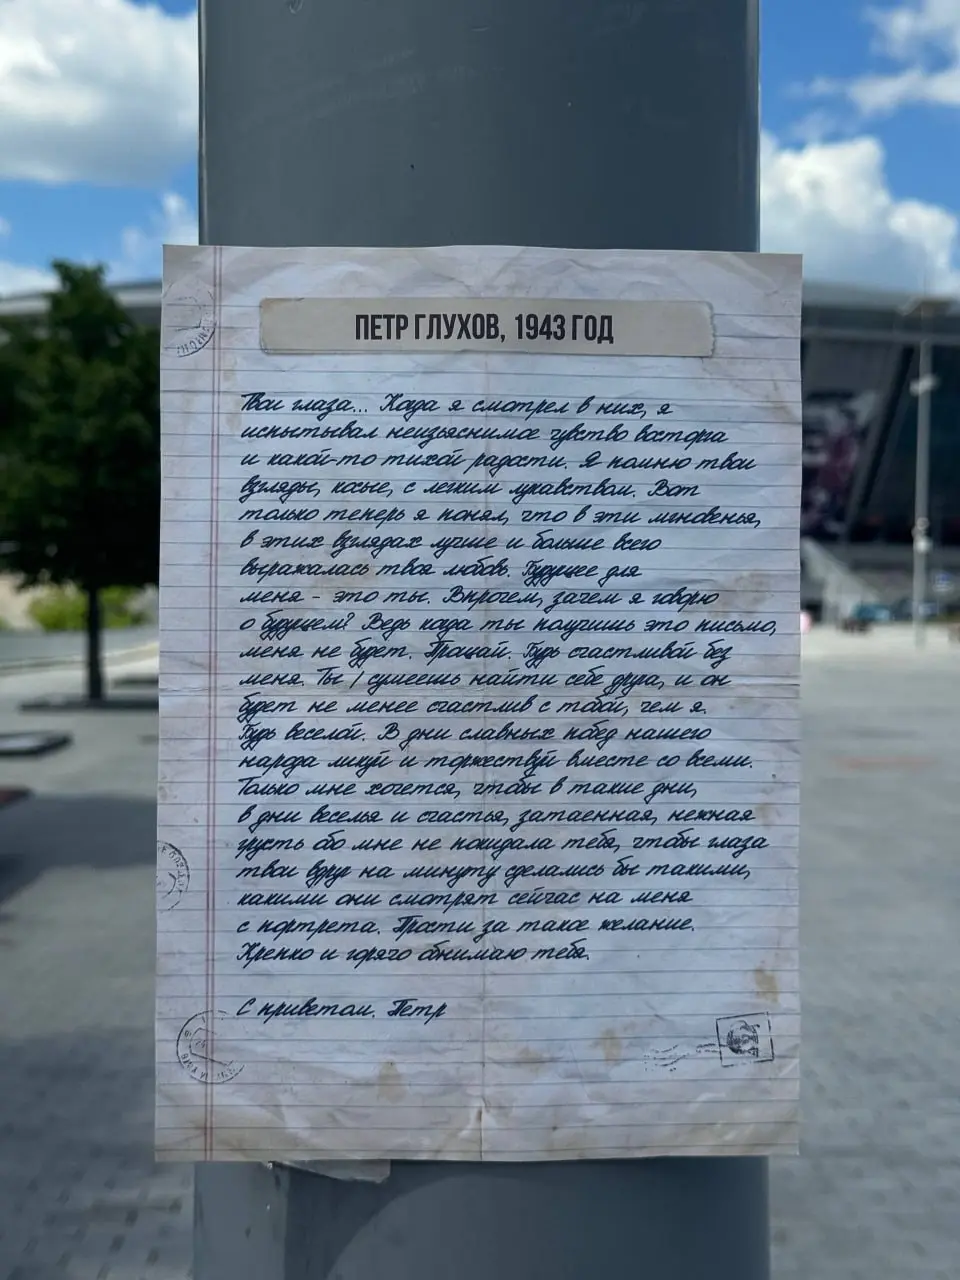 ПЕТР ГЛУХОВ, 1943 ГОД
Твои глаза... Когда я смотрел в них, я
испытывал неизъяснимое чувство восторга
и какой-то тихой радости. Я помню твои
взгляды, косые, с легким лукавством. Вот
только теперь я понял, что в эти мгновенья,
в этих взглядах лучше и больше всего
выражалась твоя любовь. Будущее для
меня - это ты. Впрочем, зачем я говорю
о будущем? Ведь когда ты получишь это письмо,
меня не будет. Прощай. Будь счастливой без
меня. Ты / сумеешь найти себе друга, и он
будет не менее счастлив с тобой, чем я.
Будь веселой. В дни славных побед нашего
народа ликуй и торжествуй вместе со всеми.
Только мне хочется, чтобы в такие дни,
в дни веселья и счастья, затаенная, нежная
грусть обо мне не покидала тебя, чтобы глаза
твои вдруг на минуту сделались бы такими,
какими они смотрят сейчас на меня
с портрета. Прости за такое желание.
Крепко и горячо обнимаю тебя.
С приветом. Петр